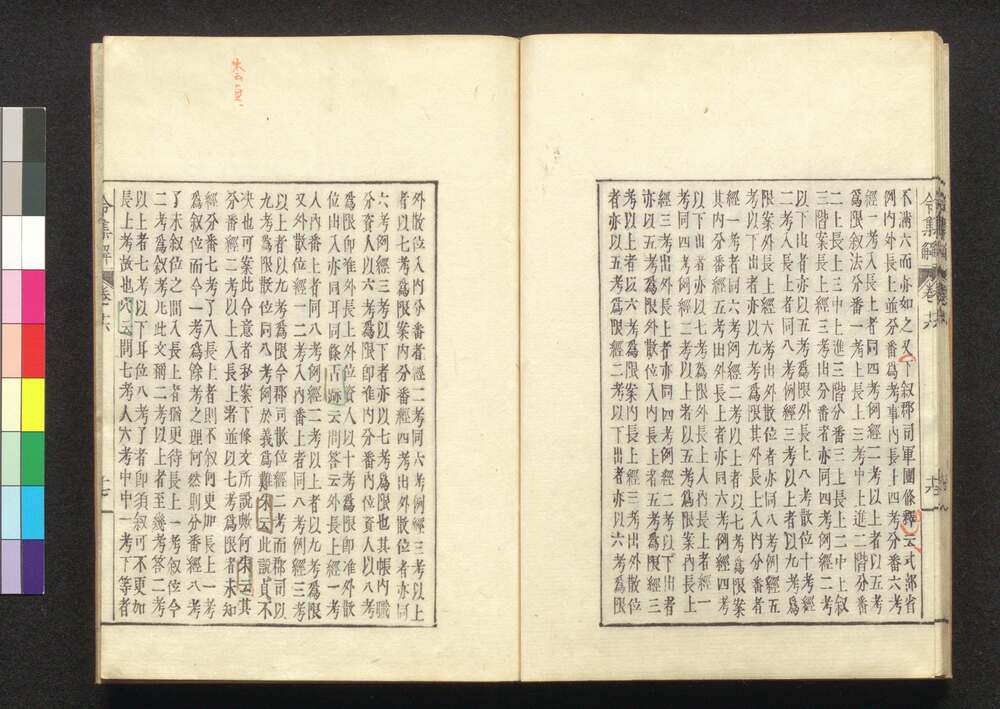 不滿六而亦如之又下敘郡司軍團條釋云式部省
例内外長上並分番爲考事内長十四考分番六考
經一考入長上者同四考例經二考以上者以五考
爲限敘法分番一考長上三考中上進二階分番
二上長上三中上進三階分番三上長上二中上敘
三階案長上經三考出分番者亦同四考例經二考
以下出者亦以五考爲限外長上八考散位十考經
二考入長上者同八考例經三考以上者以九考爲
限案外長上經六考出外散位者亦同八考例經五
考以下出者亦以九考爲限其外長上入内分番者
經一考者同六考例經二考以上者以七考爲限案
其内分番經五考出外長上者同六考例經四考
以下出者亦以七考爲限外長上入内長上者經一
考同四考例經二考以上者以五考爲限案内長上
經三考出外長上者亦同四考例經二考以下出者
亦以五考爲限外散位入内長上者五考爲限經三
考以上者以六考爲限案内長上經三考出外散位
者亦以五考爲限經二考以下出者亦以六考爲限
外散位入内分番者經二考同六考例經三考以上
者以七考爲限案内分番經四考出外散位者亦同
六考例經三考以下者亦以七考爲限也其帳内職
分資人以六考爲限卽准内分番内位資人以八考
爲限卽准外長上外位資人以十考爲限卽准外散
位出入亦同耳同條古跡云問答云外長上經一考
人内番上者同八考例經二考以上者以九考爲限
又外散位經一二考入内番上者同八考例經三考
以上者以九考爲限今郡司散位經二考而郡司以
九考爲限散位同八考例於義爲難朱云此説貞不
决也可案此令意者私案下條文所説歟何朱云其
分番經二考以上入長上者並以七考爲限者未知
經分番七考了入長上者則不敘何更加長上一考
爲敘位而今一考爲餘考之理何然則分番經八考
了未敘位之間入長上者猶更待長上一考敘位令
二考爲敘考凡此文稱二考以上者至幾考答二考
以上者七考以下耳位八考了者卽須敘可不更加
長上考故也穴云問七考人六考中中一考下等者
令集解 卷十六
朱云貞